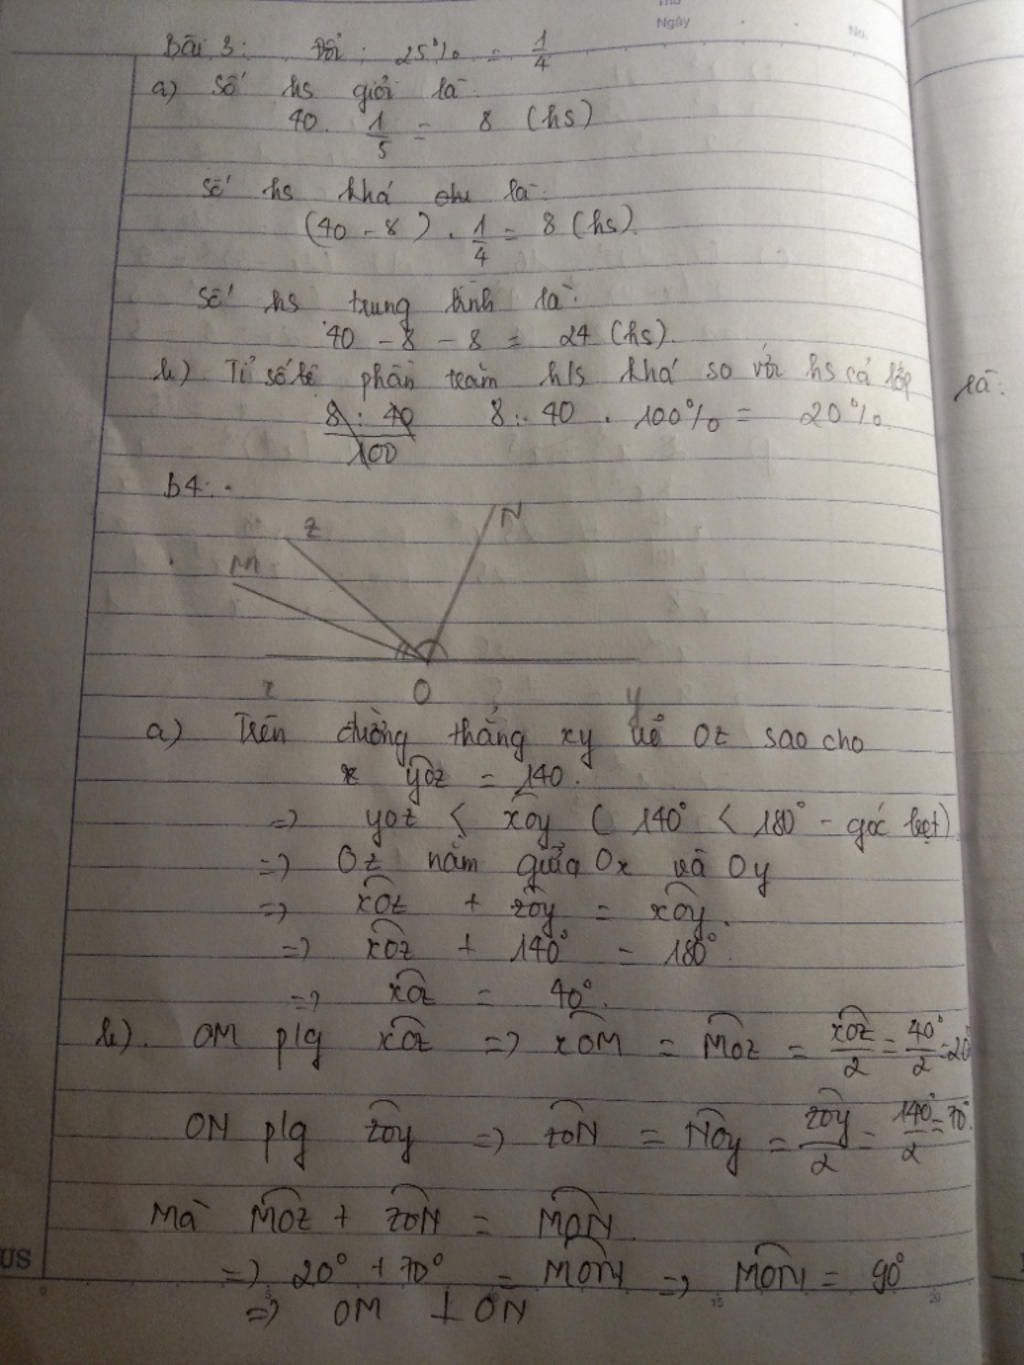 Thứ
Ngày
No.
Bài 3: Đổi: 25% = 1/4
a) Số hs giỏi là:
40. 1/5 = 8 (hs)
Số hs khá là:
(40 - 8) . 1/4 = 8 (hs).
Số hs trung bình là:
40 - 8 - 8 = 24 (hs).
b) Tỉ số phần trăm h/s khá so với hs cả lớp là:
8 : 40 / 100 8 : 40 . 100% = 20%
B4:
z N
M
x O y
a) Trên đường thẳng xy vẽ Oz sao cho
yOz = 140.
=> yOz < xOy ( 140° < 180° - góc bẹt)
=> Oz nằm giữa Ox và Oy
=> xOz + zOy = xOy.
=> xOz + 140° = 180°.
=> xOz = 40°.
b). OM p/g xOz => xOM = MOz = xOz/2 = 40°/2 = 20°
ON p/g zOy => zON = NOy = zOy/2 = 140°/2 = 70°.
Mà MOz + zON = MON
=> 20° + 70° = MON => MON = 90°
=> OM ⊥ ON
US
0 15 20